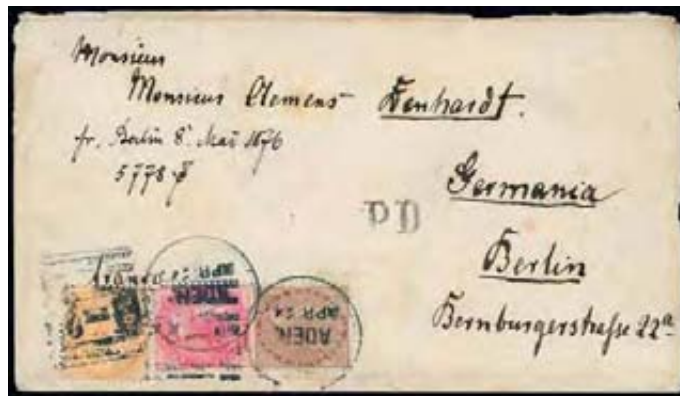 Monsieur
Monsieur Clemens Denhardt.
fr. Berlin 8. Mai 1876
5778
Germania
PD
Berlin
Bernburgerstraße 22a
APR
ADEN.
ADEN.
APR 24